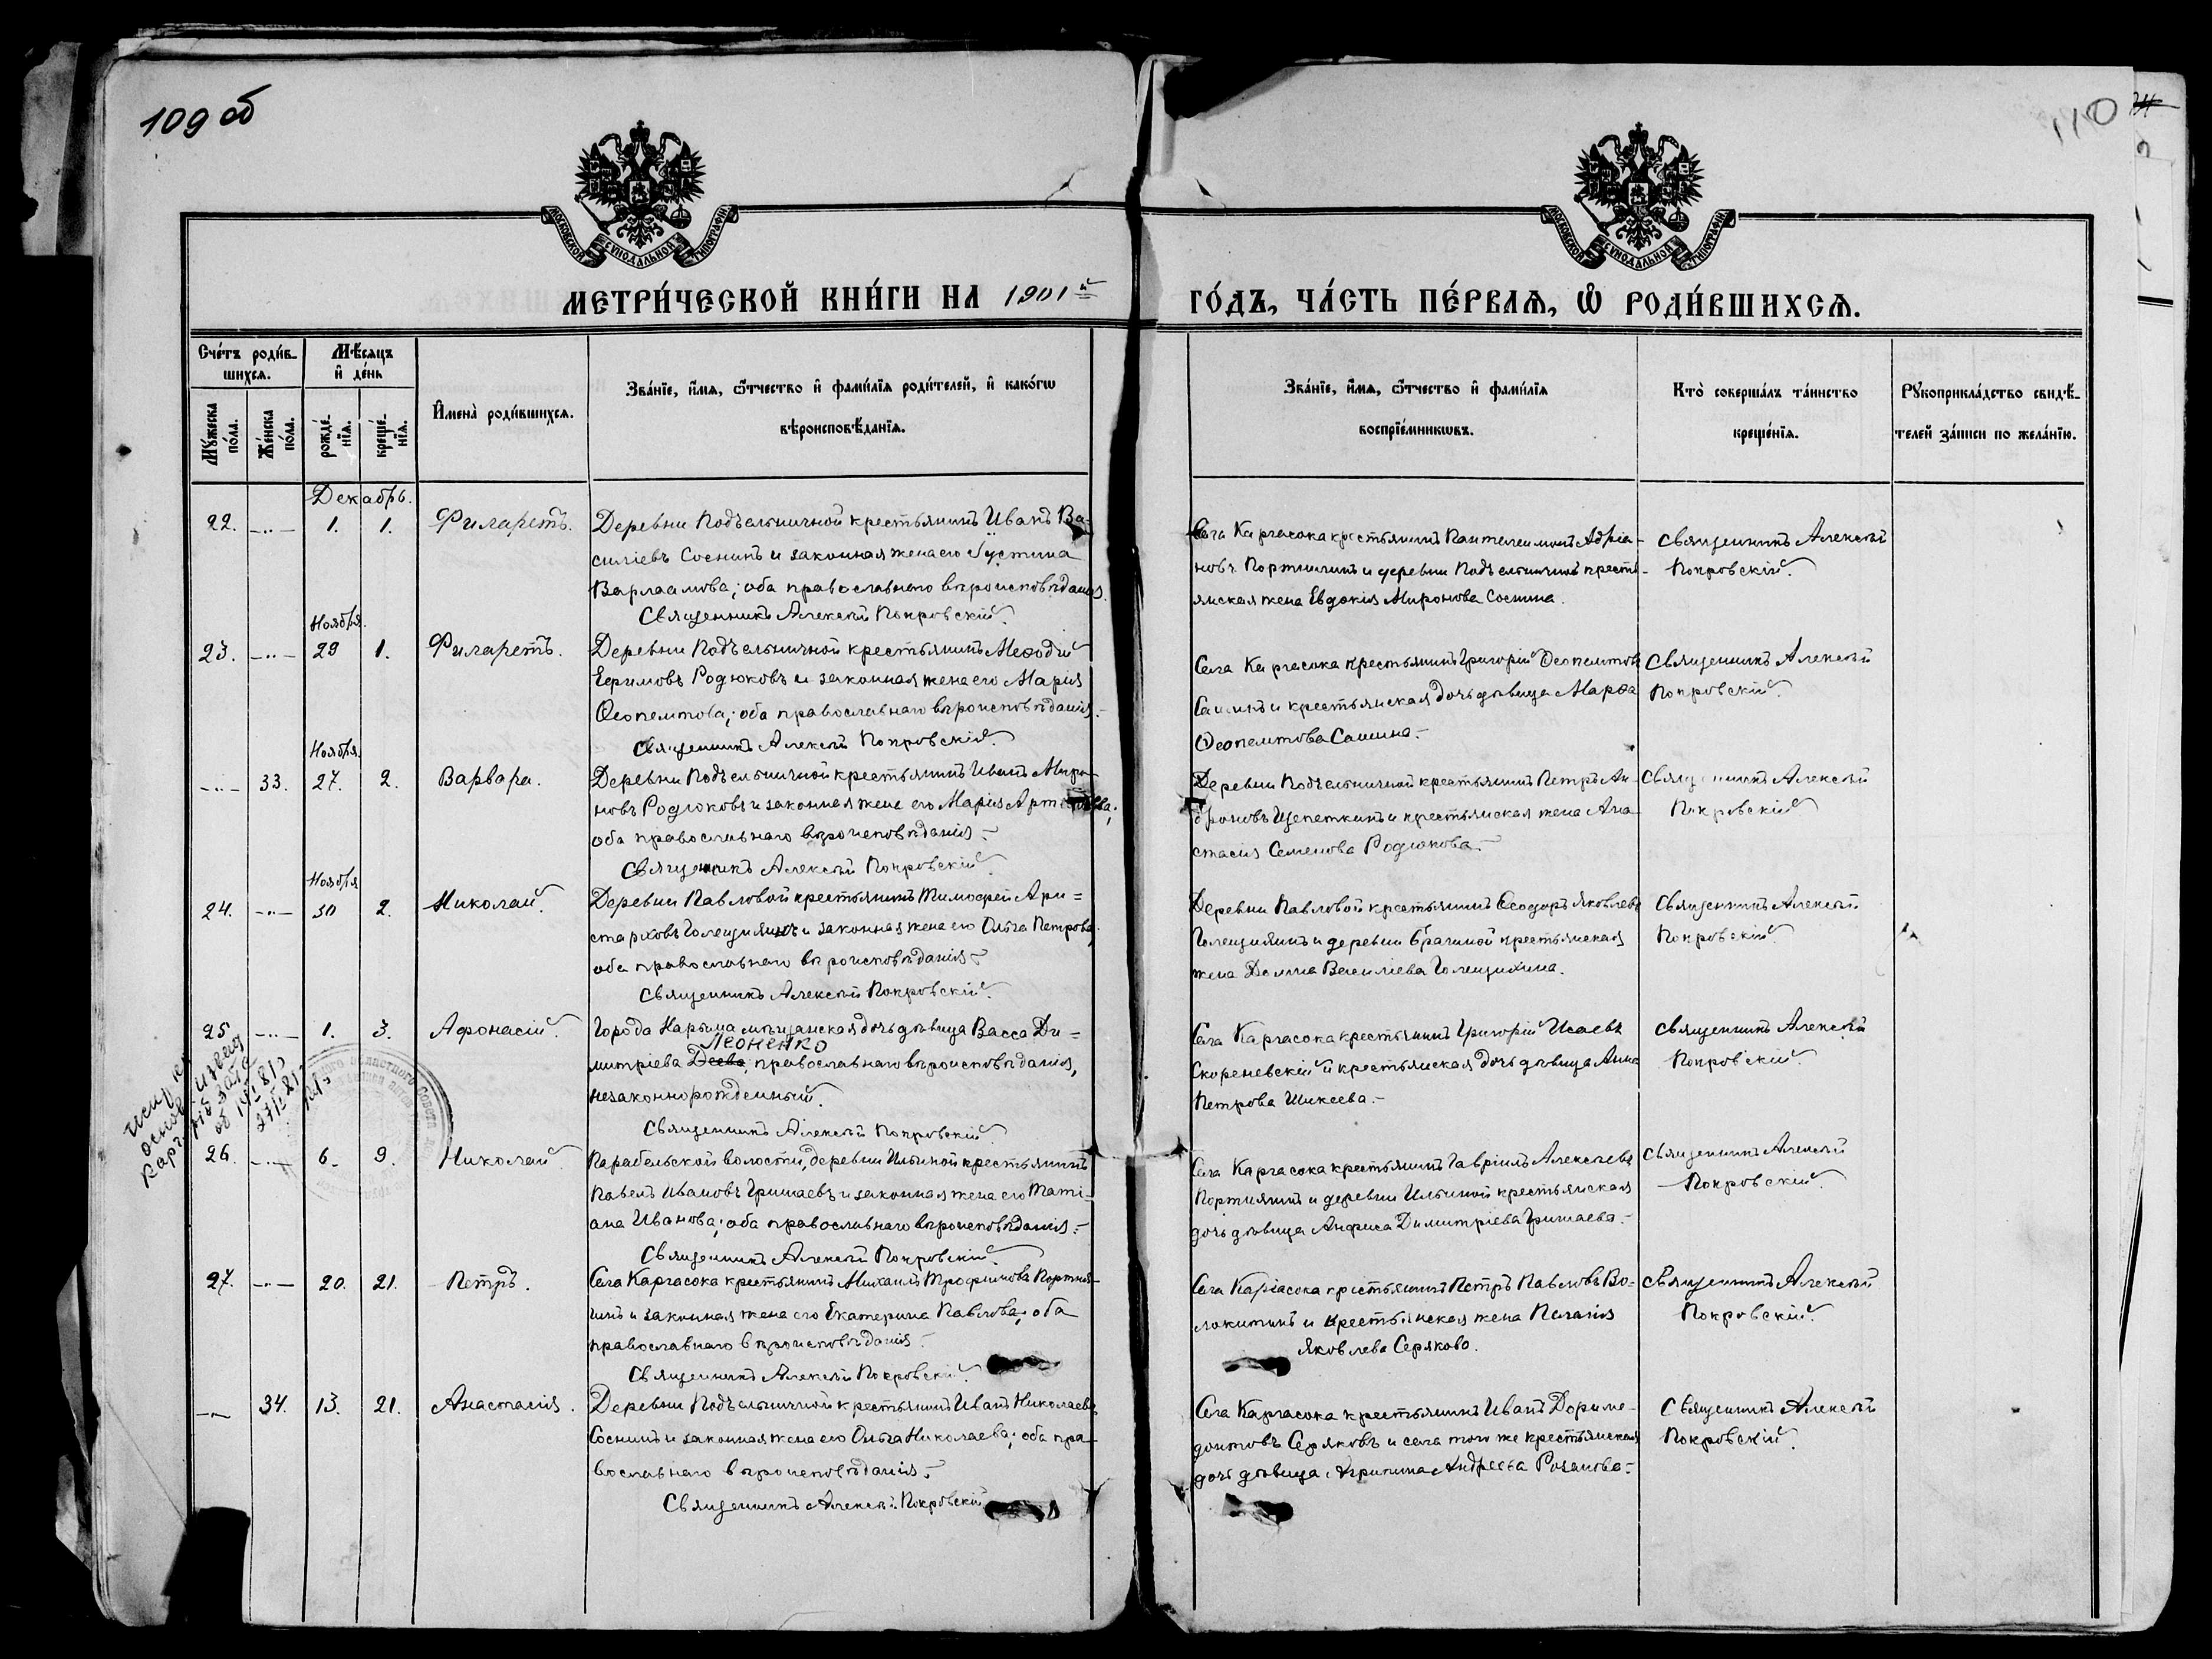 109 об
110
МОСКОВСКОЙ СѴНОДАЛЬНОЙ ТИПОГРАФІИ
МОСКОВСКОЙ СѴНОДАЛЬНОЙ ТИПОГРАФІИ
МЕТРИ́ЧЕСКОЙ КНИ́ГИ НА 1901й ГО́ДЪ, ЧА́СТЬ ПЕ́РВАѦ, Ѽ РОДИ́ВШИХСѦ.
Сче́тъ роди́в-
шихсѧ.
Мѣ́сѧцъ
и҆ де́нь
Мꙋ́жеска по́ла.
Же́нска по́ла.
рожде́нїѧ.
креще́нїѧ.
И҆мена̀ роди́вшихсѧ.
Зва́нїе, и҆́мѧ, ѻ҆́тчество и҆ фами́лїѧ роди́телей, и҆ како́гѡ
вѣроисповѣ́данїѧ.
Зва́нїе, и҆́мѧ, ѻ҆́тчество и҆ фами́лїѧ
воспрїе́мникѡвъ.
Кто̀ соверша́лъ та́инство
креще́нїѧ.
Рꙋкоприкла́дство свидѣ́-
телей за́писи по жела́нїю.
Декабрь.
22. -"- 1. 1. Филаретъ.
Деревни Подъельничной крестьянинъ Иванъ Ва-
силіевъ Соснинъ и законная жена его Іустина
Варлаамова; оба православнаго вѣроисповѣданія.
Священникъ Алексій Покровскій.
Села Каргасока крестьянинъ Пантелеимонъ Адріа-
новъ Портнягинъ и деревни Подъельничной кресть-
янская жена Евдокія Миронова Соснина.
Священникъ Алексій
Покровскій.
Ноября.
23. -"- 29 1. Филаретъ.
Деревни Подъельничной крестьянинъ Меѳодій
Ефимовъ Родюковъ и законная жена его Марія
Ѳеопемтова; оба православнаго вѣроисповѣданія.
Священникъ Алексій Покровскій.
Села Каргасока крестьянинъ Григорій Ѳеопемтовъ
и крестьянская дочь дѣвица Марѳа
Ѳеопемтова
Священникъ Алексій
Покровскій.
Ноября.
-"- 33. 27. 2. Варвара.
Деревни Подъельничной крестьянинъ Иванъ Миро-
новъ Родюковъ и законная жена его Марія
оба православнаго вѣроисповѣданія.
Священникъ Алексій Покровскій.
Деревни Подъельничной крестьянинъ Петръ Ан-
дроновъ Щепеткинъ и крестьянская жена Ана-
стасія Семенова Родюкова.
Священникъ Алексій
Покровскій
Ноября
24. -"- 30 2. Николай.
Деревни Павловой крестьянинъ Тимоѳей Ари=
старховъ Голещихинъ и законная жена его Ольга Петрова;
оба православнаго вѣроисповѣданія.
Священникъ Алексій Покровскій.
Деревни Павловой крестьянинъ Ѳеодоръ Яковлевъ
Голещихинъ и деревни крестьянская
жена Домна Василіева Голещихина.
Священникъ Алексій
Покровскій.
25 -"- 1. 3. Афонасій.
Города Нарыма мѣщанская дочь дѣвица Васса Ди=
Леоненко
митріева Деева, православнаго вѣроисповѣданія,
незаконнорожденный.
Священникъ Алексій Покровскій.
Села Каргасока крестьянинъ Григорій Исаевъ
Скореневскій и крестьянская дочь дѣвица Анна
Петрова Шикеева.
Священникъ Алексій
Покровскій.
26. -"- 6. 9. Николай.
Парабельской волости, деревни Ильиной крестьянинъ
Павелъ Ивановъ Гришаевъ и законная жена его Тати-
ана Иванова; оба православнаго вѣроисповѣданія.
Священникъ Алексій Покровскій.
Села Каргасока крестьянинъ Гавріилъ Алексѣевъ
Портнягинъ и деревни Ильиной крестьянская
дочь дѣвица Анфиса Димитріева Гришаева.
Священникъ Алексій
Покровскій.
27. -"- 20. 21. Петръ.
Села Каргасока крестьянинъ Михаилъ Трофимовъ Портня-
гинъ и законная жена его Екатерина Павлова; оба
православнаго вѣроисповѣданія.
Священникъ Алексій Покровскій.
Села Каргасока крестьянинъ Петръ Павловъ Во-
локитинъ и крестьянская жена Пелагія
Яковлева Серякова.
Священникъ Алексій
Покровскій.
-"- 34. 13. 21. Анастасія.
Деревни Подъельничной крестьянинъ Иванъ Николаевъ
Соснинъ и законная жена его Ольга Николаева; оба пра-
вославнаго вѣроисповѣданія.
Священникъ Алексій Покровскій
Села Каргасока крестьянинъ Иванъ Дориме-
донтовъ Серяковъ и села того же крестьянская
дочь дѣвица Агрипина Андреева Розанова.
Священникъ Алексій
Покровскій.